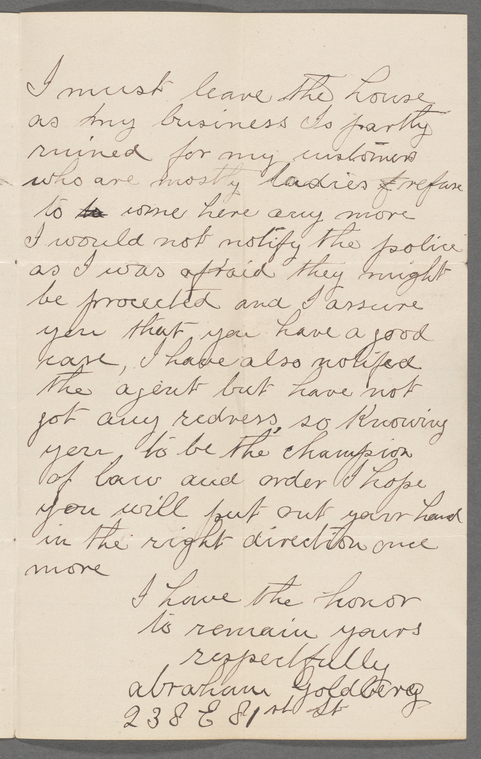 I must leave the house
as my business is partly
ruined for my customers
who are mostly ladies refuse
to come here any more
I would not notify the police
as I was afraid they might
be procected and I assure
you that you have a good
case, I have also notifed
the agent but have not
got any redress, so Knowing
you to be the champion
of law and order I hope
you will put out your hand
in the right direction once
more
I have the honor
to remain yours
respectfully
abraham Goldberg
238 E 81st St